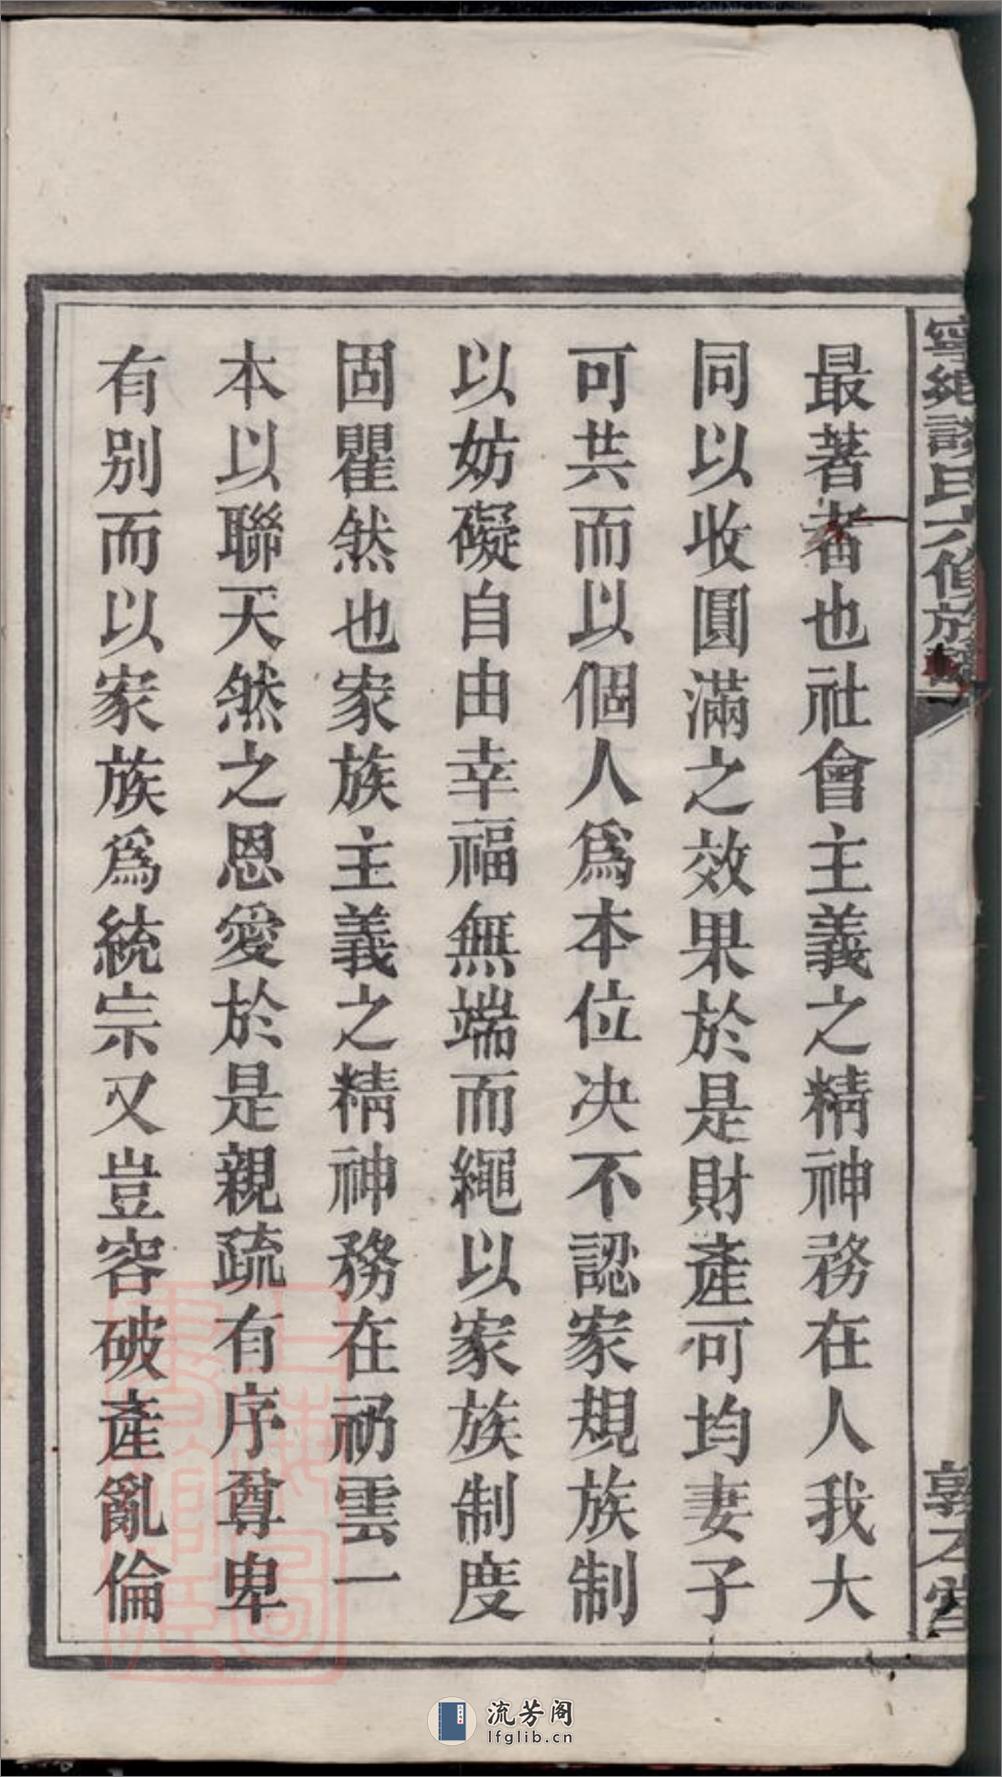 寧鄉談氏六修族譜
敦本堂
最著者也社會主義之精神務在人我大
同以收圓滿之效果於是財產可均妻子
可共而以個人爲本位決不認家規族制
以妨礙自由幸福無端而繩以家族制度
固瞿然也家族主義之精神務在礽雲一
本以聯天然之恩愛於是親疏有序尊卑
有別而以家族爲統宗又豈容破產亂倫
流芳阁
lfglib.cn